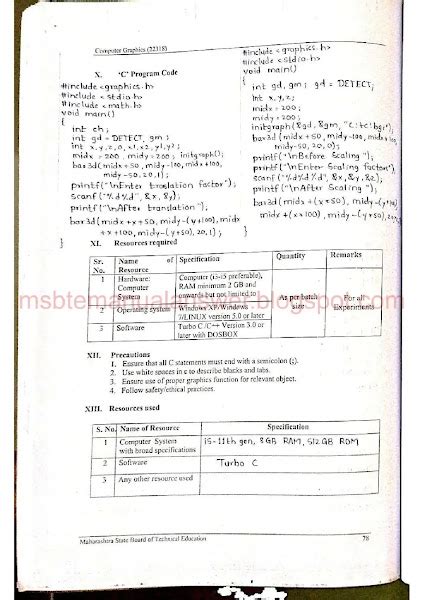 Computer Graphics (22318)
X. 'C' Program Code
#include<graphics.h>
#include <stdio.h>
#include <math.h>
void main()
{
int ch;
int gd = DETECT, gm;
int x, y, z, o, x1, x2, y1, y2;
midx = 200, midy = 200; initgraph();
bar3d(midx+50, midy-100, midx+100,
midy-50, 20, 1);
printf("\nEnter translation factor");
scanf("%d%d", &x, &y);
printf("\nAfter translation");
bar3d(midx+x+50, midy-(y+100), midx
+x+100, midy-(y+50), 20, 1);
}
#include <graphics.h>
#include <stdio.h>
void main()
{
int gd, gm; gd = DETECT;
int x, y, z;
midx = 200;
midy = 200;
initgraph(&gd, &gm, "C:\tc\bgi");
bar3d(midx+50, midy-100, midx+100,
midy-50, 20, 0);
printf("\nBefore Scaling");
printf("\nEnter Scaling factor");
scanf("%d%d%d", &x, &y, &z);
printf("\nAfter Scaling");
bar3d(midx+(x*50), midy-(y*100),
midx+(x*100), midy-(y*50), 20,
XI. Resources required
Sr. No. Name of Resource Specification Quantity Remarks
1 Hardware: Computer System Computer (i3-i5 preferable), RAM minimum 2 GB and onwards but not limited to As per batch size For all Experiments
2 Operating system Windows XP/Windows 7/LINUX version 5.0 or later
3 Software Turbo C /C++ Version 3.0 or later with DOSBOX
XII. Precautions
1. Ensure that all C statements must end with a semicolon (;).
2. Use white spaces in c to describe blanks and tabs.
3. Ensure use of proper graphics function for relevant object.
4. Follow safety/ethical practices.
XIII. Resources used
S. No. Name of Resource Specification
1 Computer System with broad specifications i5-11th gen, 8GB RAM, 512 GB ROM
2 Software Turbo C
3 Any other resource used
Maharashtra State Board of Technical Education 78